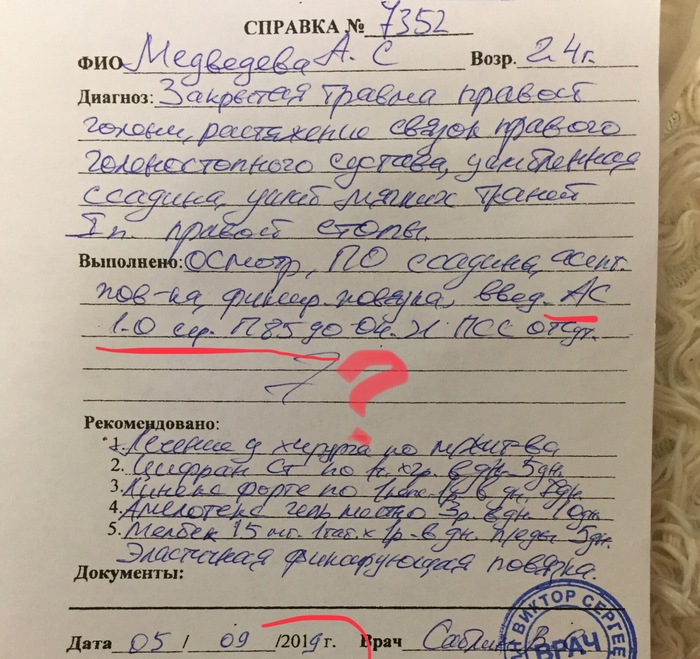 СПРАВКА № 7352
ФИО Медведева А. С Возр. 24г.
Диагноз: Закрытая травма правой
голени, растяжение связок правого
голеностопного сустава, ушибленная
ссадина, ушиб мягких тканей
I п. правой стопы.
Выполнено: осмотр, ПО ссадины, асепт.
пов-ка, фиксир. повязка, введ. АС
1.0 сер. П85 до ПСС отсут.
?
Рекомендовано:
1. Лечение у хирурга по м/жит-ва
2. Цифран СТ по 1т. х 2р. в дн. 5дн.
3. Кинекс форте по 1 капс. 1р в дн, 7дн.
4. Амелотекс гель местно 3р. в дн. 10дн.
5. Мелбек 15 мг. 1таб. х 1р. в дн. п/еды 5дн.
Эластичная фиксирующая повязка.
Документы:
Дата 05 / 09 /2019 г. Врач
ВИКТОР СЕРГЕЕ
ВРАЧ